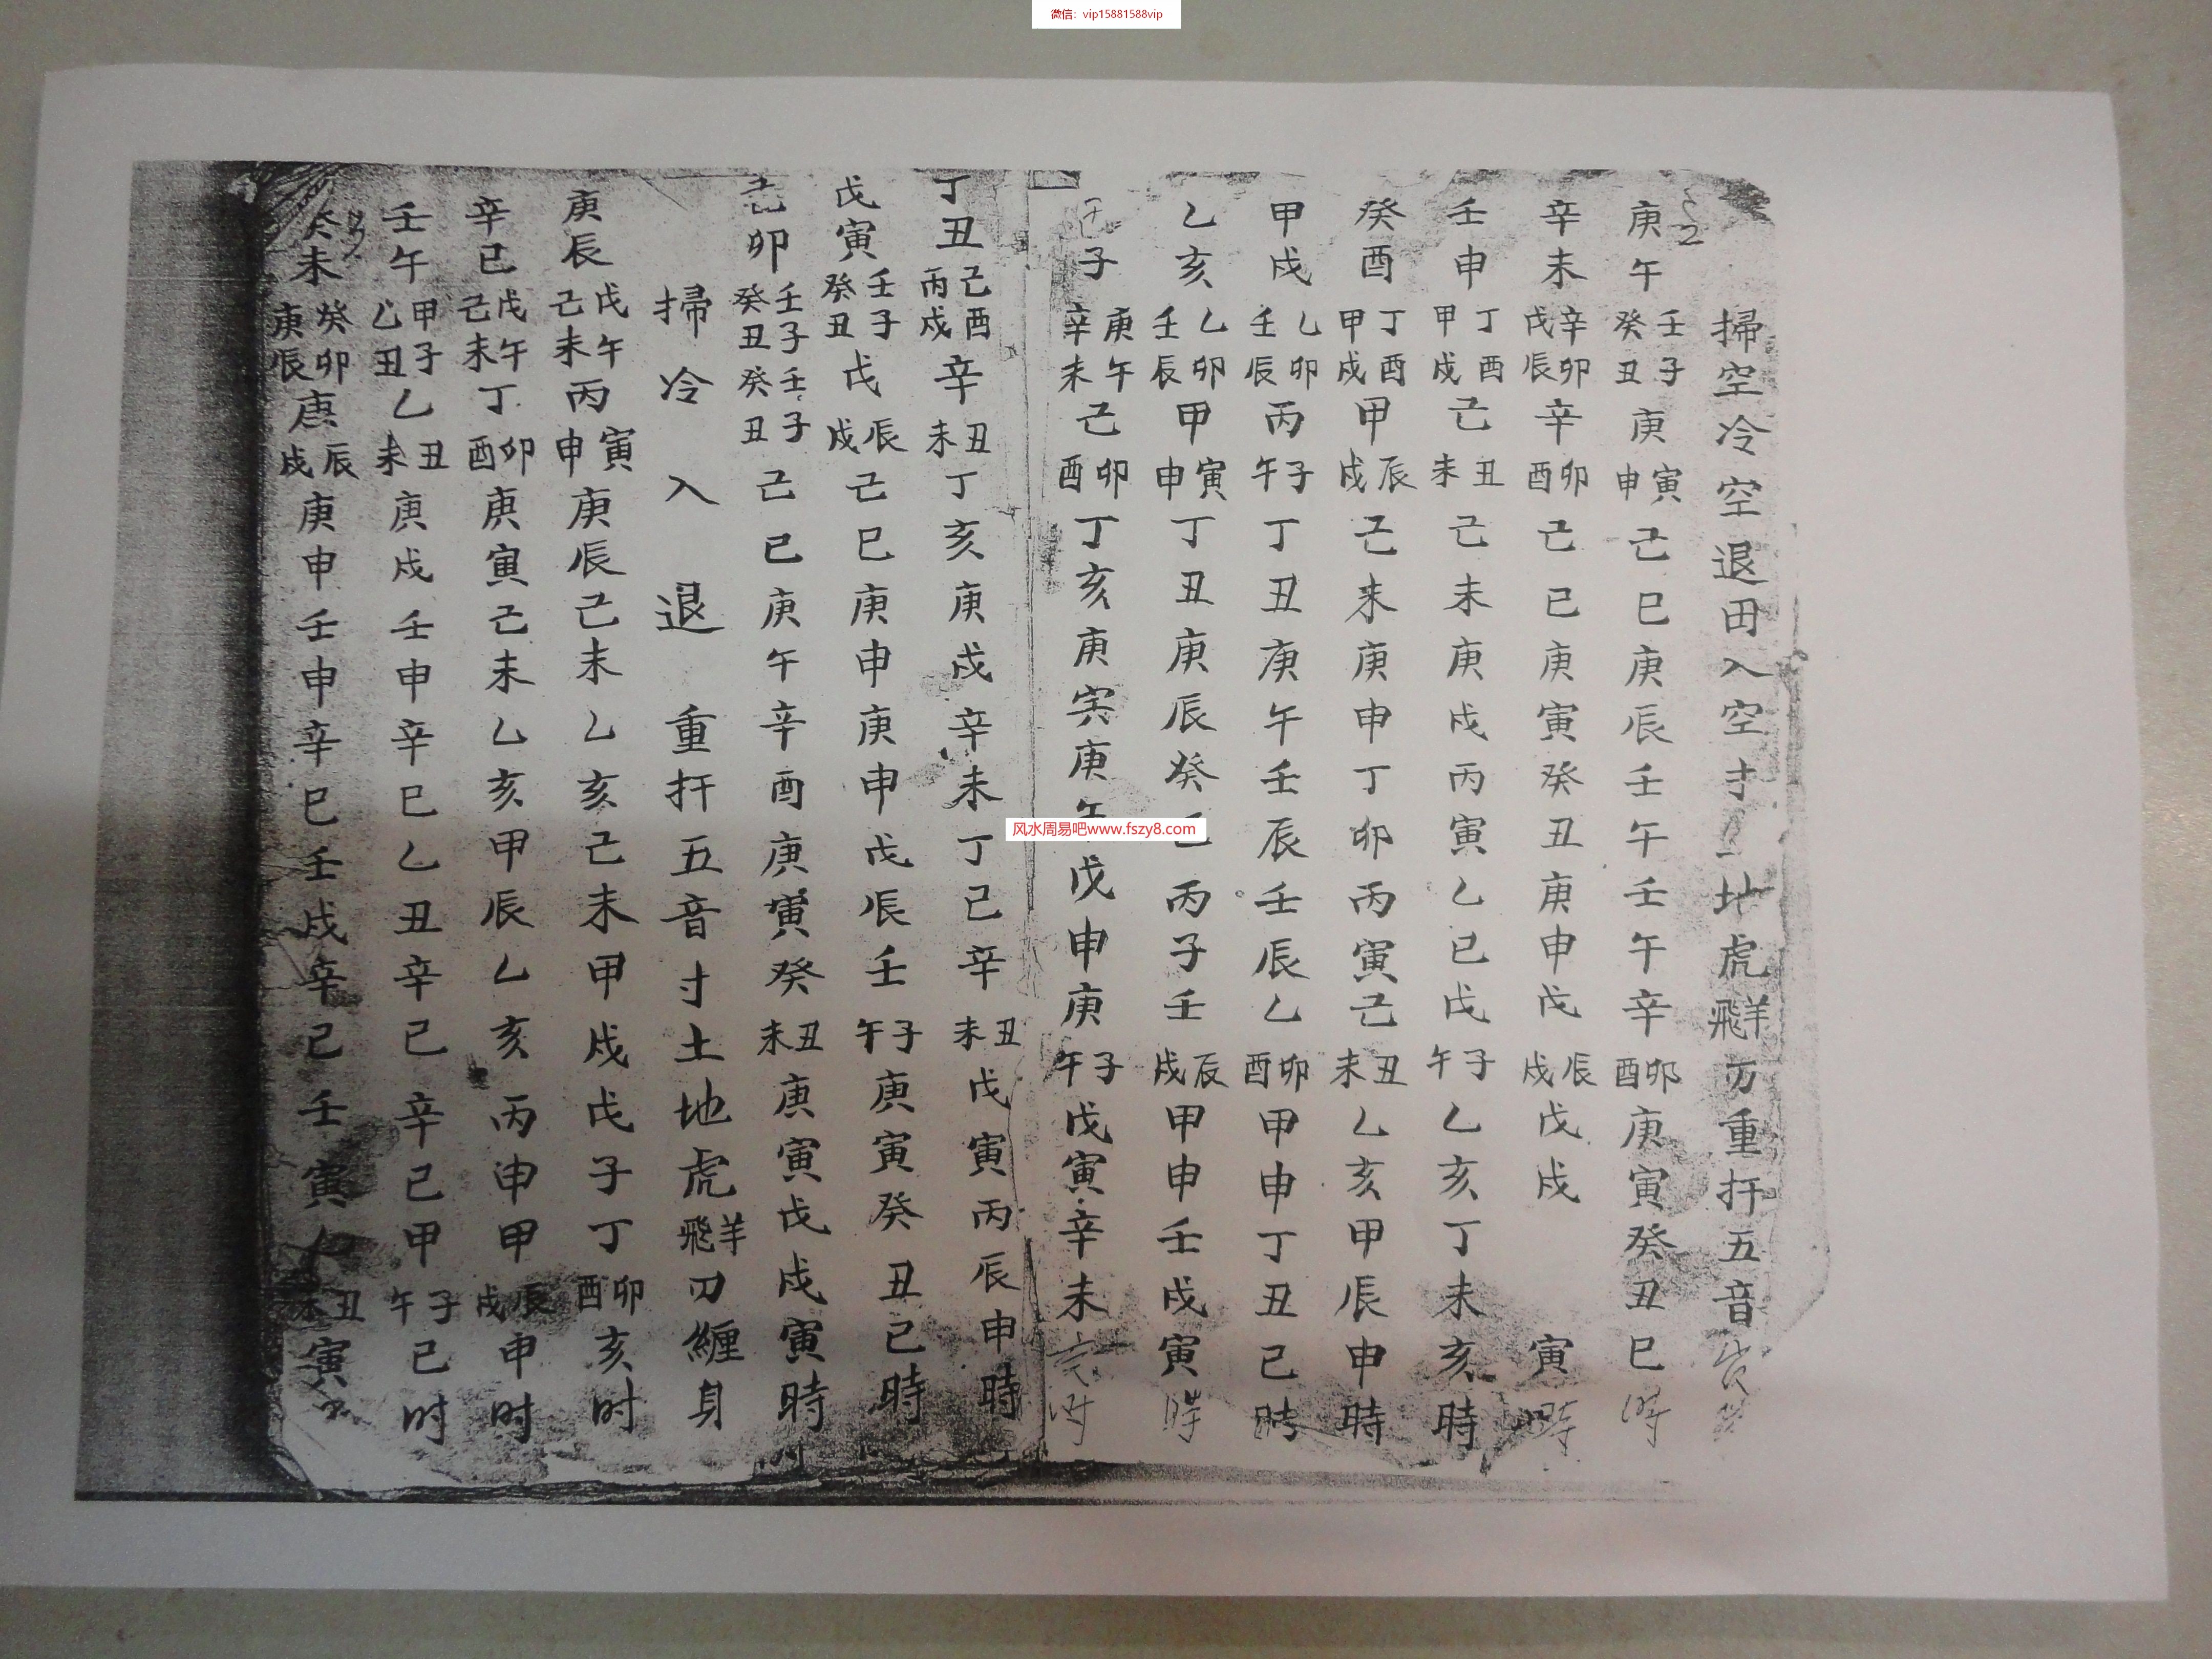 微信：vip15881588vip
掃空冷空退田入空寸地虎飛羊刀重扞五音
庚午壬子癸丑庚寅申己巳庚辰壬午壬午辛卯酉庚寅癸丑巳時
辛未辛卯戊辰辛卯酉己巳庚寅癸丑庚申戊辰戌戊戌寅時
壬申丁酉甲戌己丑未己未庚戌丙寅乙巳戊子午乙亥丁未亥時
癸酉丁酉甲戌甲辰戌己未庚申丁卯丙寅己丑未乙亥甲辰申時
甲戌乙卯壬辰丙子午丁丑庚午壬辰壬辰乙卯酉甲申丁丑己時
乙亥乙卯壬辰甲寅申丁丑庚辰癸丙子壬辰戌甲申壬戌寅時
子庚午辛未己卯酉丁亥庚寅庚戊申庚子午戊寅辛未亥时
丁丑己酉丙戌辛丑未丁亥庚戌辛未丁己辛丑未戊寅丙辰申時
戊寅壬子癸丑戊辰戌己巳庚申庚申戊辰壬子午庚寅癸丑己時
己卯壬子癸丑壬子癸丑己巳庚午辛酉庚寅癸丑未庚寅戊戌寅時
掃冷入退重扞五音寸土地虎飛羊刀纏身
庚辰戊午己未丙寅申庚辰己未乙亥己未甲戌戊子丁卯酉亥时
辛巳戊午己未丁卯酉庚寅己未乙亥甲辰乙亥丙申甲辰戌申时
壬午甲子乙丑乙丑未庚戌壬申辛巳乙丑辛巳辛巳甲子午巳时
癸未癸卯庚辰庚辰戌庚申壬申辛巳壬戌辛巳壬寅丑未寅
风水周易吧www.fszy8.com